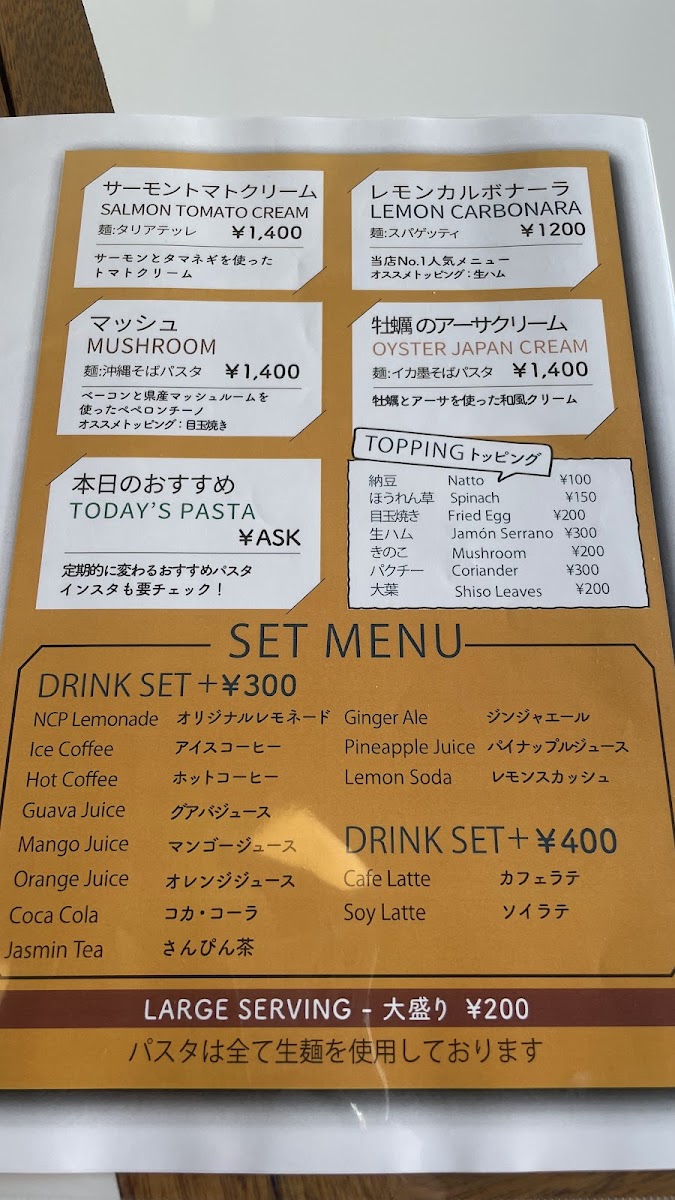 サーモントマトクリーム
SALMON TOMATO CREAM
麺:タリアテッレ ¥1,400
サーモンとタマネギを使った
トマトクリーム
レモンカルボナーラ
LEMON CARBONARA
麺:スパゲッティ ¥1200
当店No.1人気メニュー
オススメトッピング：生ハム
マッシュ
MUSHROOM
麺:沖縄そばパスタ ¥1,400
ベーコンと県産マッシュルームを
使ったペペロンチーノ
オススメトッピング：目玉焼き
牡蠣のアーサクリーム
OYSTER JAPAN CREAM
麺:イカ墨そばパスタ ¥1,400
牡蠣とアーサを使った和風クリーム
本日のおすすめ
TODAY'S PASTA
¥ASK
定期的に変わるおすすめパスタ
インスタも要チェック！
TOPPING トッピング
納豆 Natto ¥100
ほうれん草 Spinach ¥150
目玉焼き Fried Egg ¥200
生ハム Jamón Serrano ¥300
きのこ Mushroom ¥200
パクチー Coriander ¥300
大葉 Shiso Leaves ¥200
SET MENU
DRINK SET +¥300
NCP Lemonade オリジナルレモネード
Ice Coffee アイスコーヒー
Hot Coffee ホットコーヒー
Guava Juice グアバジュース
Mango Juice マンゴージュース
Orange Juice オレンジジュース
Coca Cola コカ・コーラ
Jasmin Tea さんぴん茶
Ginger Ale ジンジャエール
Pineapple Juice パイナップルジュース
Lemon Soda レモンスカッシュ
DRINK SET+¥400
Cafe Latte カフェラテ
Soy Latte ソイラテ
LARGE SERVING - 大盛り ¥200
パスタは全て生麺を使用しております